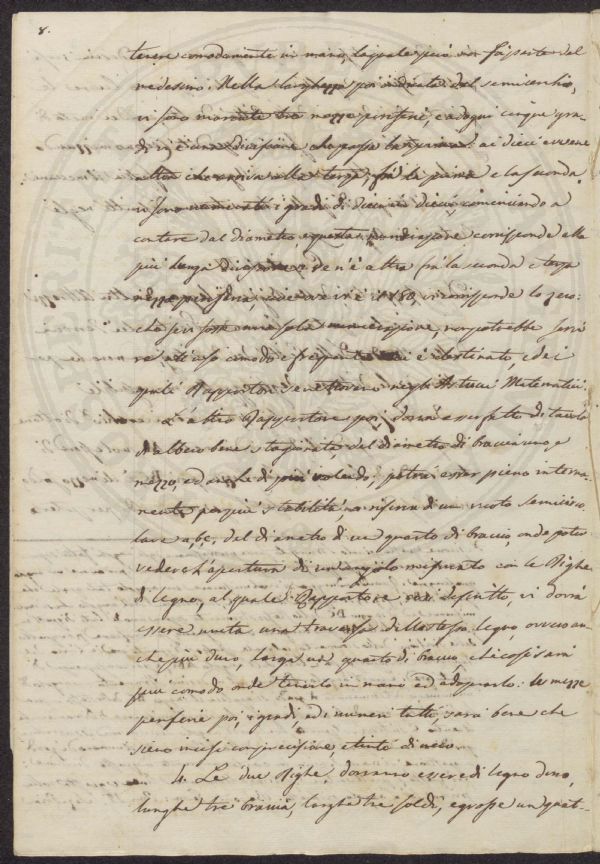 8.
tenere comodamente in mano, la quale può far parte del
medesimo. Nella larghezza poi ordinata del semicerchio,
vi sono marcate tre mezze periferie, ed ogni cinque gra-
di vi è una divisione che passa la prima: ai dieci avvene
altra che arriva alla terza; frà la prima e la seconda
vi sono numerati i gradi di dieci in dieci, cominciando a
contare dal diametro, e questa numerazione corrisponde alla
più lunga divisione, e ve n'è altra frà la seconda e terza
mezza periferia, e dove vi è il 180, vi corrisponde lo zero:
che se vi fosse una sola numerazione, non potrebbe servi-
re, all'uso comodo e frequente cui è destinato, ed ei
quali Rapportori se ne trovano negli Astucci Matematici.
L'altro Rapportore poi, dovrà esser fatto di tavola
di albero bene stagionata, del diametro di braccia uno e
mezzo, ed anche di più volendo; potrà esser pieno interna-
mente per più stabilità, a riserva di un vuoto semicirco-
lare a, b, c, del diametro di un quarto di braccio, onde poter
vedere l'apertura di un angolo misurato con le Righe
di legno, al quale Rapportore così descritto, vi dovrà
essere unita una traversa dello stesso legno, ovvero an-
che più duro, larga un quarto di braccio, che così sarà
più comodo onde tenerlo in mano ed adoprarlo: le mezze
periferie poi, i gradi, ed i numeri tutti, sarà bene che
sieno incisi con precisione, e tinti di nero.
4. Le due Righe, dovranno essere di legno duro,
lunghe tre braccia, larghe tre soldi, e grosse un quat-